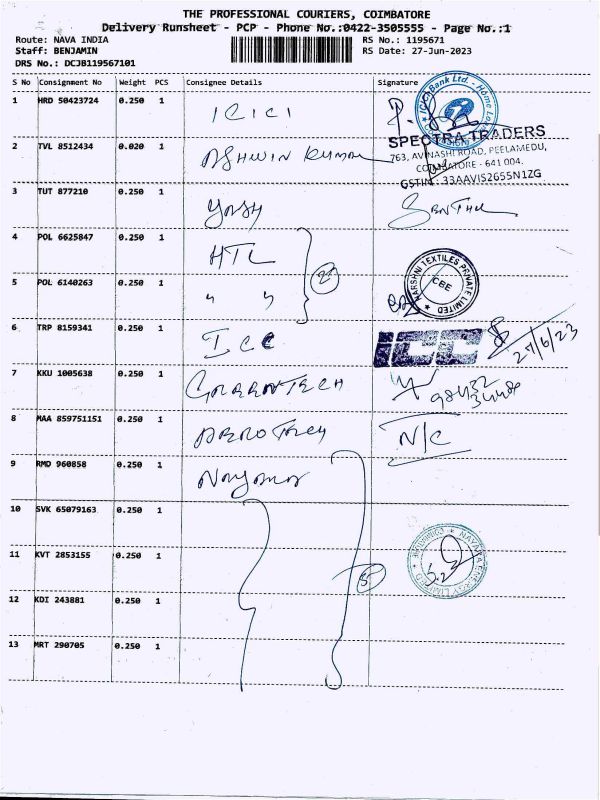 THE PROFESSIONAL COURIERS, COIMBATORE
Delivery Runsheet - PCP - Phone No.:0422-3505555 - Page No.:1
Route: NAVA INDIA RS No.: 1195671
Staff: BENJAMIN RS Date: 27-Jun-2023
DRS No.: DCJB119567101
S No Consignment No Weight PCS Consignee Details Signature
1 HRD 50423724 0.250 1 ICICI
SPECTRA TRADERS
2 TVL 8512434 0.020 1 ASHWIN KUMAR 763, AVINASHI ROAD, PEELAMEDU,
COIMBATORE - 641 004.
GSTIN : 33AAVIS2655N1ZG
3 TUT 877210 0.250 1 YASH
4 POL 6625847 0.250 1 HTL
2
5 POL 6140263 0.250 1 " " HARSHNI TEXTILES PRIVATE LIMITED CBE
6 TRP 8159341 0.250 1 ICC ICC 27/6/23
7 KKU 1005638 0.250 1
8 MAA 859751151 0.250 1 N/C
9 RMD 960858 0.250 1
10 SVK 65079163 0.250 1
11 KVT 2853155 0.250 1 5
12 KDI 243881 0.250 1
13 MRT 290705 0.250 1